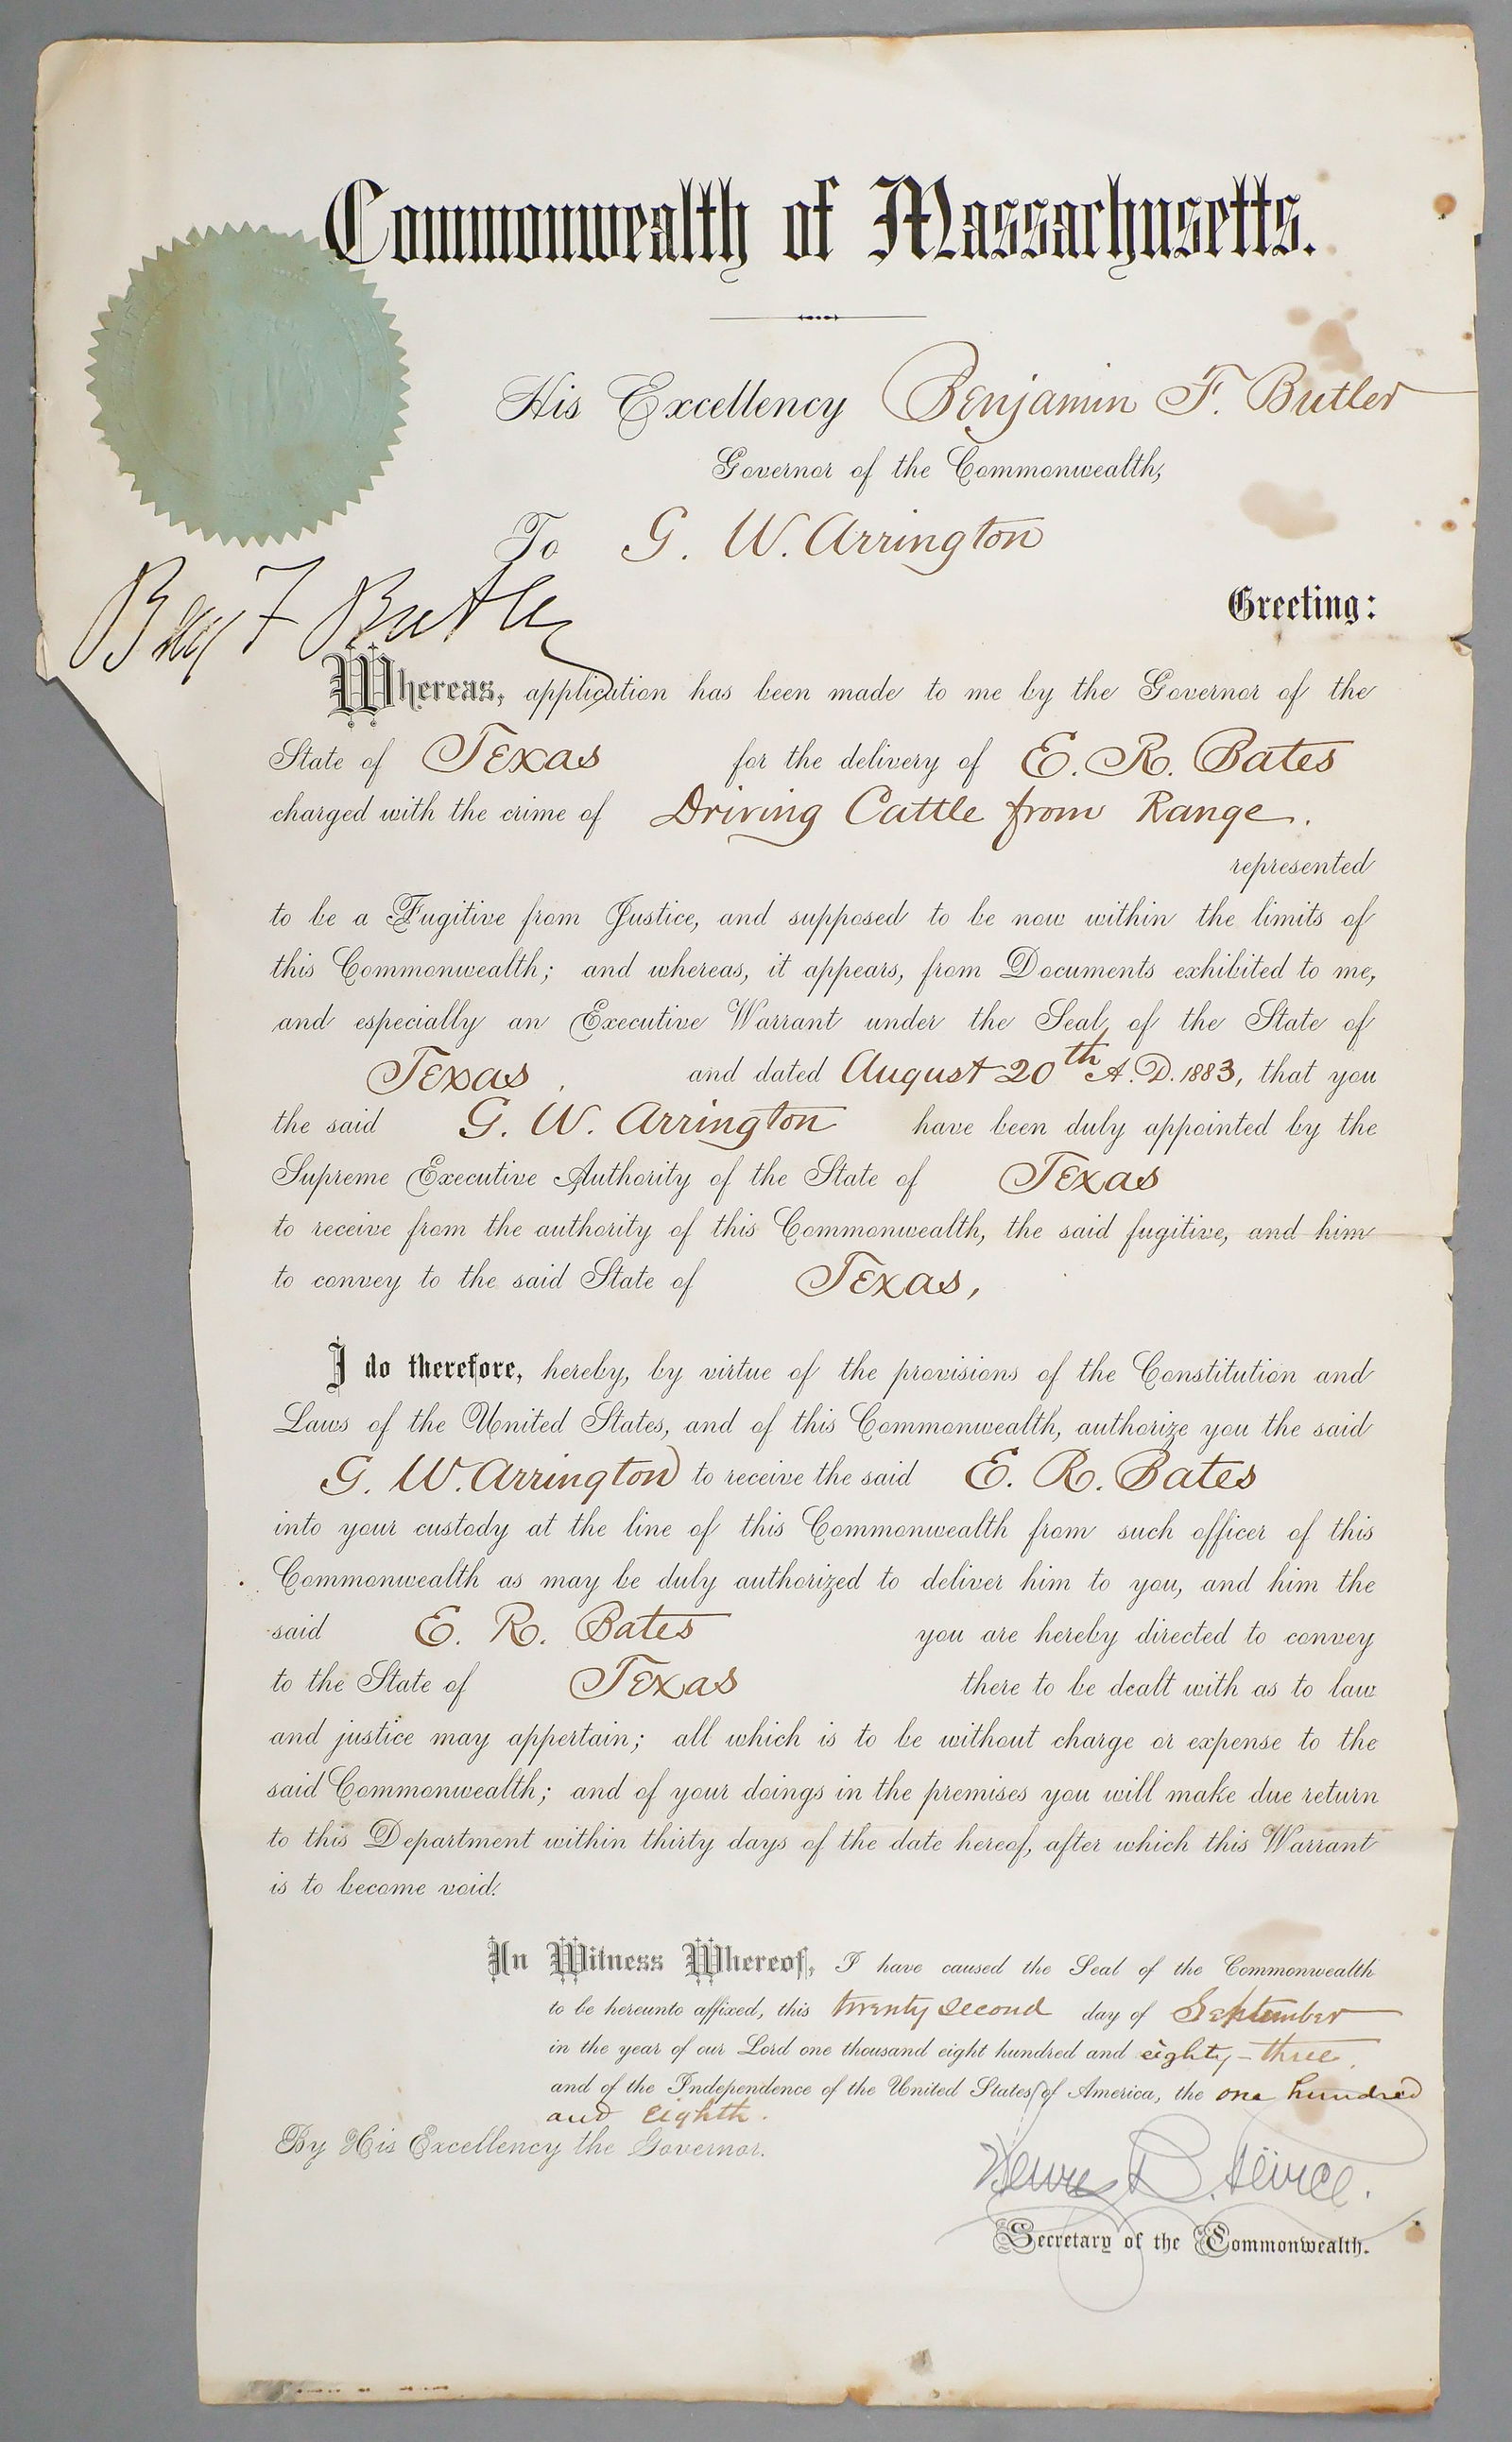 Commonwealth of Massachusetts.
His Excellency Benjamin F. Butler
Governor of the Commonwealth,
To G. W. Arrington
Greeting:
Benj F Butler
Whereas, application has been made to me by the Governor of the
State of Texas for the delivery of E. R. Bates
charged with the crime of Driving Cattle from Range.
represented
to be a Fugitive from Justice, and supposed to be now within the limits of
this Commonwealth; and whereas, it appears, from Documents exhibited to me,
and especially an Executive Warrant under the Seal of the State of
Texas, and dated August 20th A. D. 1883, that you
the said G. W. Arrington have been duly appointed by the
Supreme Executive Authority of the State of Texas
to receive from the authority of this Commonwealth, the said fugitive, and him
to convey to the said State of Texas,
I do therefore, hereby, by virtue of the provisions of the Constitution and
Laws of the United States, and of this Commonwealth, authorize you the said
G. W. Arrington to receive the said E. R. Bates
into your custody at the line of this Commonwealth from such officer of this
Commonwealth as may be duly authorized to deliver him to you, and him the
said E. R. Bates you are hereby directed to convey
to the State of Texas there to be dealt with as to law
and justice may appertain; all which is to be without charge or expense to the
said Commonwealth; and of your doings in the premises you will make due return
to this Department within thirty days of the date hereof, after which this Warrant
is to become void.
In Witness Whereof, I have caused the Seal of the Commonwealth
to be hereunto affixed, this twenty second day of September
in the year of our Lord one thousand eight hundred and eighty-three.
and of the Independence of the United States of America, the one hundred
and eighth.
By His Excellency the Governor.
Henry B. Peirce.
Secretary of the Commonwealth.